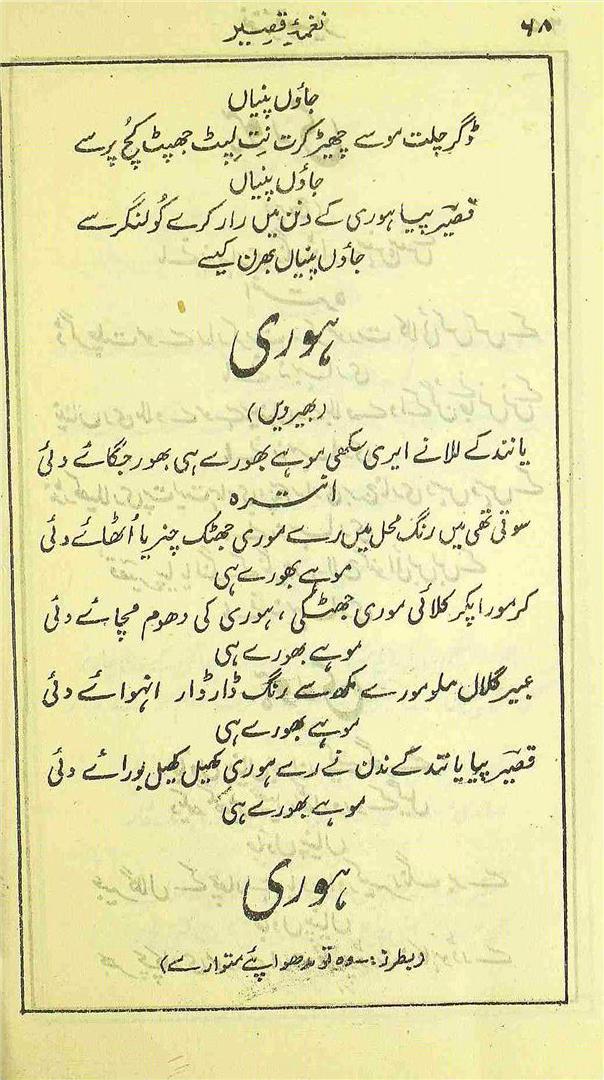 ۶۸
نغمۂ قصیر
جاؤں پنیاں
ڈگر چلت موسے چھیڑ کرت نِت لپٹ جھپٹ کُچ پر سے
جاؤں پنیاں
قصیرؔ پیا ہوری کے دنن میں رار کرے کو لنگر سے
جاؤں پنیاں بھرن کیسے
ہوری
(بھیرویں)
یا نند کے للا نے ایری سکھی موہے بھورے ہی بھور جگائے دئی
انترہ
سوتی تھی میں رنگ محل میں رے موری جھٹک چنریا اُٹھائے دئی
موہے بھورے ہی
کر مورا پکر کلائی موری جھٹکی، ہوری کی دھوم مچائے دئی
موہے بھورے ہی
عبیر گلال ملو مورے مکھ سے رنگ ڈار ڈار انہوائے دئی
موہے بھورے ہی
قصیرؔ پیا یا نند کے نندن نے رے ہوری کھیل کھیل بورائے دئی
موہے بھورے ہی
ہوری
(بطرز:- وہ تو مدھوا پئے متوارسے)